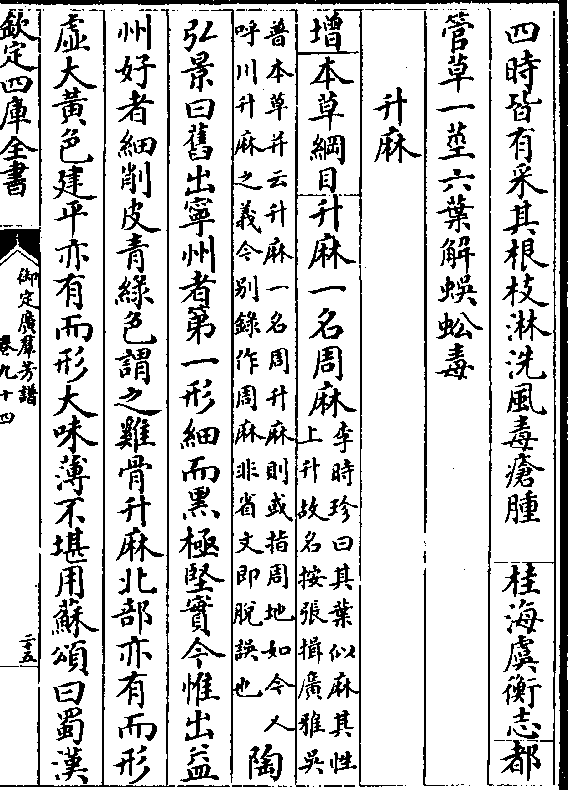 四時皆有采其根枝淋洗風毒瘡腫 桂海虞衡志都
管草一莖六葉解蜈蚣毒
升麻
增本草綱目升麻一名周麻
李時珍曰其葉似麻其性
上升故名按張揖廣雅吳
普本草并云升麻一名周升麻則或指周地如今人
呼川升麻之義今别錄作周麻非省文即脫誤也
陶
弘景曰舊出寧州者第一形細而黑極堅實今惟出益
州好者細削皮青綠色謂之雞骨升麻北部亦有而形
虛大黃色建平亦有而形大味薄不堪用蘇頌曰蜀漢
欽定四庫全書
御定廣羣芳譜
卷九十四
二十五